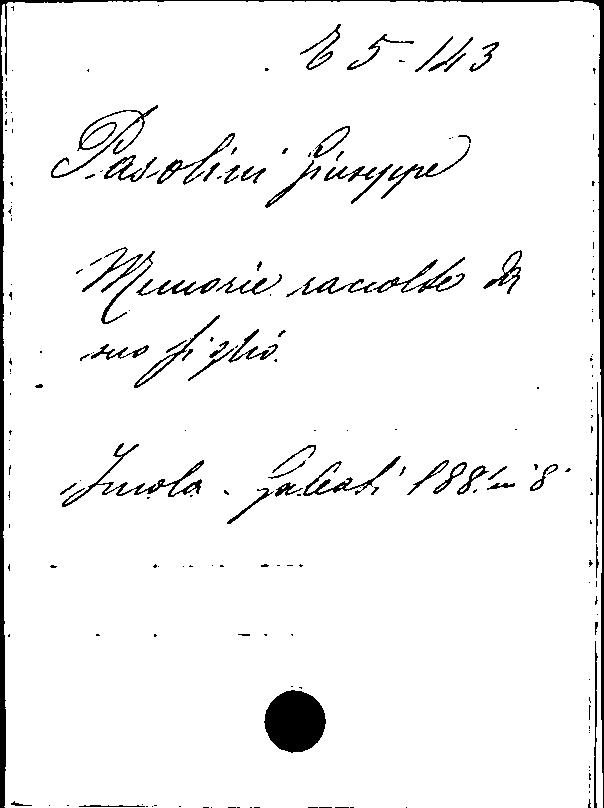 E 5-143
Pasolini Giuseppe
Memorie raccolte da
suo figlio.
Imola - Galeati 1881 in 8°